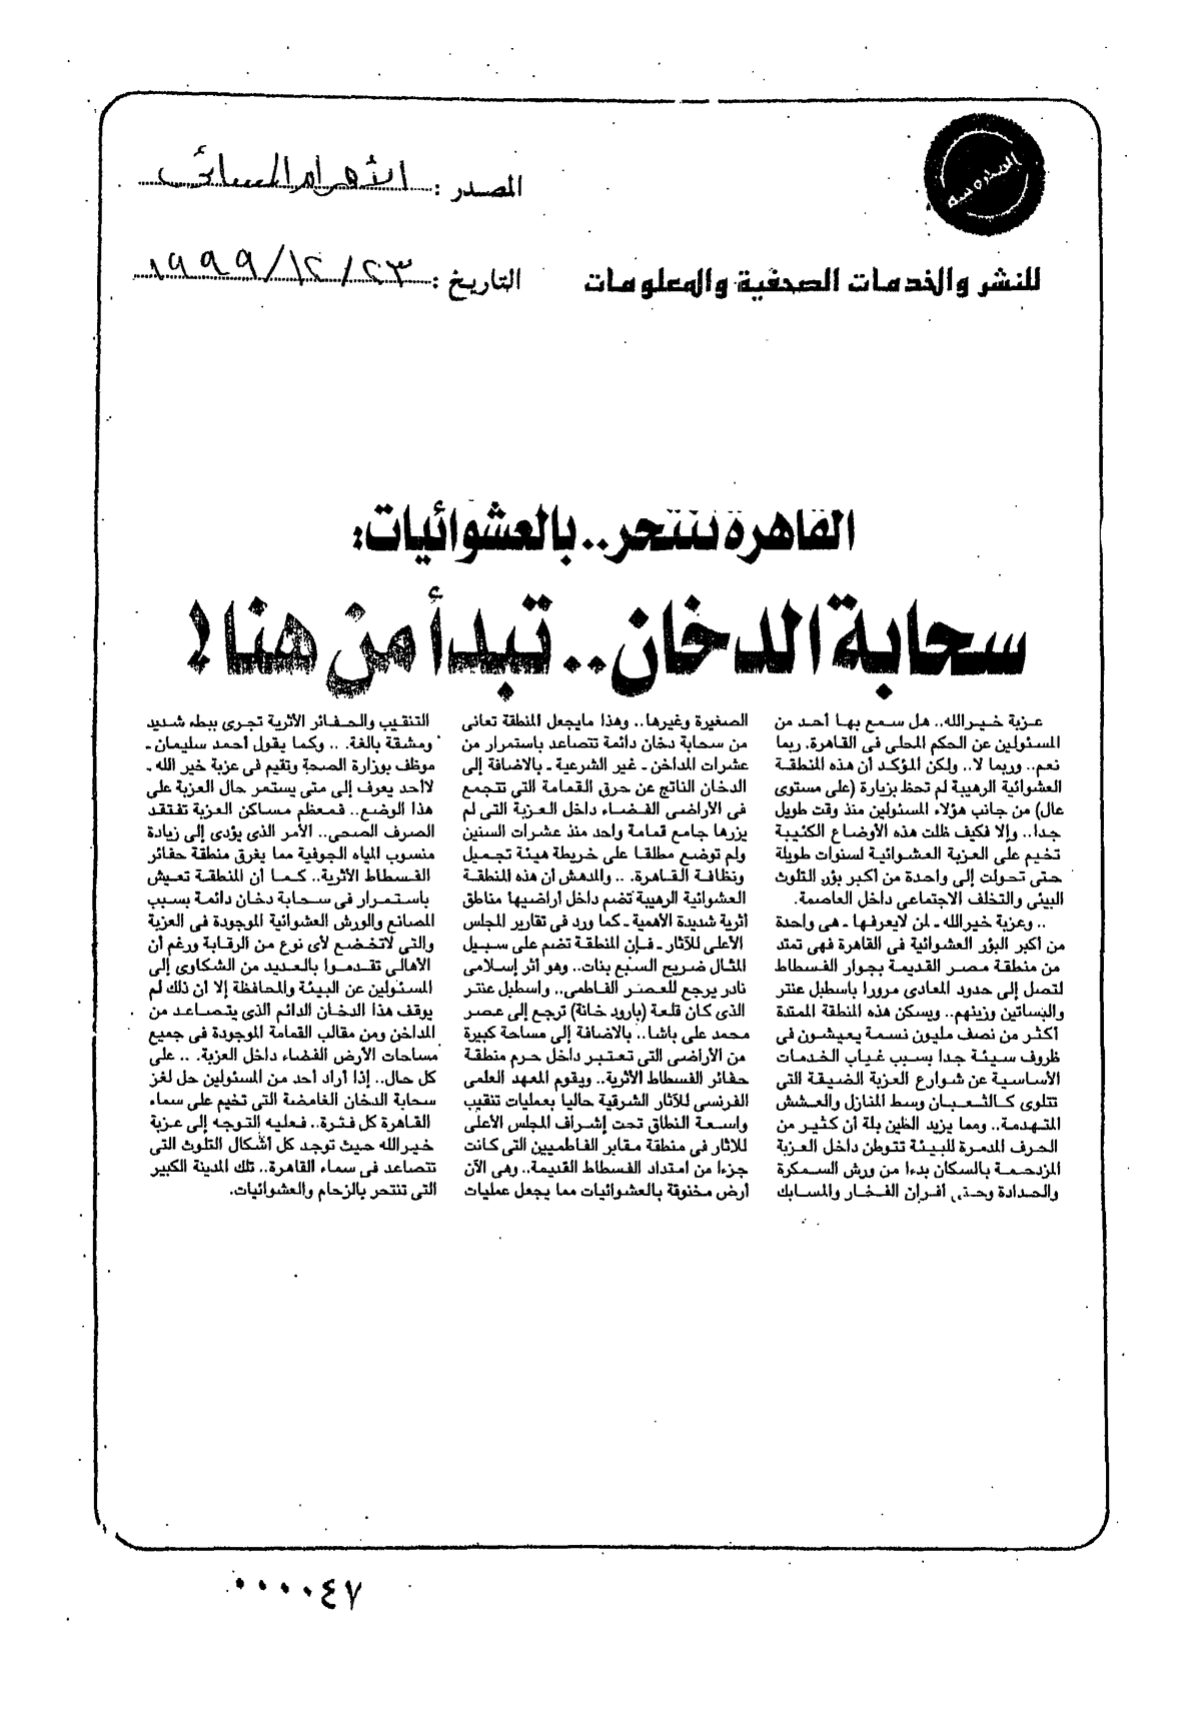 المصدر : الأهرام المسائى
التاريخ : ٢٣/١٢/١٩٩٩
للنشر والخدمات الصحفية والمعلومات
القاهرة تنتحر.. بالعشوائيات:
سحابة الدخان.. تبدأ من هنا!
عزبة خيرالله.. هل سمع بها أحد من
المسئولين عن الحكم المحلى فى القاهرة. ربما
نعم.. وربما لا.. ولكن المؤكد أن هذه المنطقة
العشوائية الرهيبة لم تحظ بزيارة (على مستوى
عال) من جانب هؤلاء المسئولين منذ وقت طويل
جدا.. وإلا فكيف ظلت هذه الأوضاع الكئيبة
تخيم على العزبة العشوائية لسنوات طويلة
حتى تحولت إلى واحدة من أكبر بؤر التلوث
البيئى والتخلف الاجتماعى داخل العاصمة.
.. وعزبة خيرالله ـ لمن لايعرفها ـ هى واحدة
من أكبر البؤر العشوائية فى القاهرة فهى تمتد
من منطقة مصر القديمة بجوار الفسطاط
لتصل إلى حدود المعادى مرورا باسطبل عنتر
والبساتين وزينهم.. ويسكن هذه المنطقة الممتدة
أكثر من نصف مليون نسمة يعيشون فى
ظروف سيئة جدا بسبب غياب الخدمات
الأساسية عن شوارع العزبة الضيقة التى
تتلوى كالثعبان وسط المنازل والعشش
المتهدمة.. ومما يزيد الطين بلة أن كثير من
الحرف المدمرة للبيئة تتوطن داخل العزبة
المزدحمة بالسكان بدءا من ورش السمكرة
والحدادة وحتى أفران الفخار والمسابك
الصغيرة وغيرها.. وهذا مايجعل المنطقة تعانى
من سحابة دخان دائمة تتصاعد باستمرار من
عشرات المداخن ـ غير الشرعية ـ بالاضافة إلى
الدخان الناتج عن حرق القمامة التى تتجمع
فى الأراضى الفضاء داخل العزبة التى لم
يزرها جامع قمامة واحد منذ عشرات السنين
ولم توضع مطلقا على خريطة هيئة تجميل
ونظافة القاهرة. .. والمدهش أن هذه المنطقة
العشوائية الرهيبة تضم داخل أراضيها مناطق
أثرية شديدة الأهمية ـ كما ورد فى تقارير المجلس
الأعلى للآثار ـ فإن المنطقة تضم على سبيل
المثال ضريح السبع بنات.. وهو أثر إسلامى
نادر يرجع للعصر الفاطمى.. واسطبل عنتر
الذى كان قلعة (بارود خانة) ترجع إلى عصر
محمد على باشا.. بالاضافة إلى مساحة كبيرة
من الأراضى التى تعتبر داخل حرم منطقة
حفائر الفسطاط الأثرية.. ويقوم المعهد العلمى
الفرنسى للآثار الشرقية حاليا بعمليات تنقيب
واسعة النطاق تحت إشراف المجلس الأعلى
للاثار فى منطقة مقابر الفاطميين التى كانت
جزءا من امتداد الفسطاط القديمة.. وهى الآن
أرض مخنوقة بالعشوائيات مما يجعل عمليات
التنقيب والحفائر الأثرية تجرى ببطء شديد
ومشقة بالغة. .. وكما يقول أحمد سليمان ـ
موظف بوزارة الصحة وتقيم فى عزبة خير الله ـ
لاأحد يعرف إلى متى يستمر حال العزبة على
هذا الوضع.. فمعظم مساكن العزبة تفتقد
الصرف الصحى.. الأمر الذى يؤدى إلى زيادة
منسوب المياه الجوفية مما يغرق منطقة حفائر
الفسطاط الأثرية.. كما أن المنطقة تعيش
باستمرار فى سحابة دخان دائمة بسبب
المصانع والورش العشوائية الموجودة فى العزبة
والتى لاتخضع لأى نوع من الرقابة ورغم أن
الأهالى تقدموا بالعديد من الشكاوى إلى
المسئولين عن البيئة والمحافظة إلا أن ذلك لم
يوقف هذا الدخان الدائم الذى يتصاعد من
المداخن ومن مقالب القمامة الموجودة فى جميع
مساحات الأرض الفضاء داخل العزبة. .. على
كل حال.. إذا أراد أحد من المسئولين حل لغز
سحابة الدخان الغامضة التى تخيم على سماء
القاهرة كل فترة.. فعليه التوجه إلى عزبة
خيرالله حيث توجد كل أشكال التلوث التى
تتصاعد فى سماء القاهرة.. تلك المدينة الكبير
التى تنتحر بالزحام والعشوائيات.
٠٠٠٠٤٧